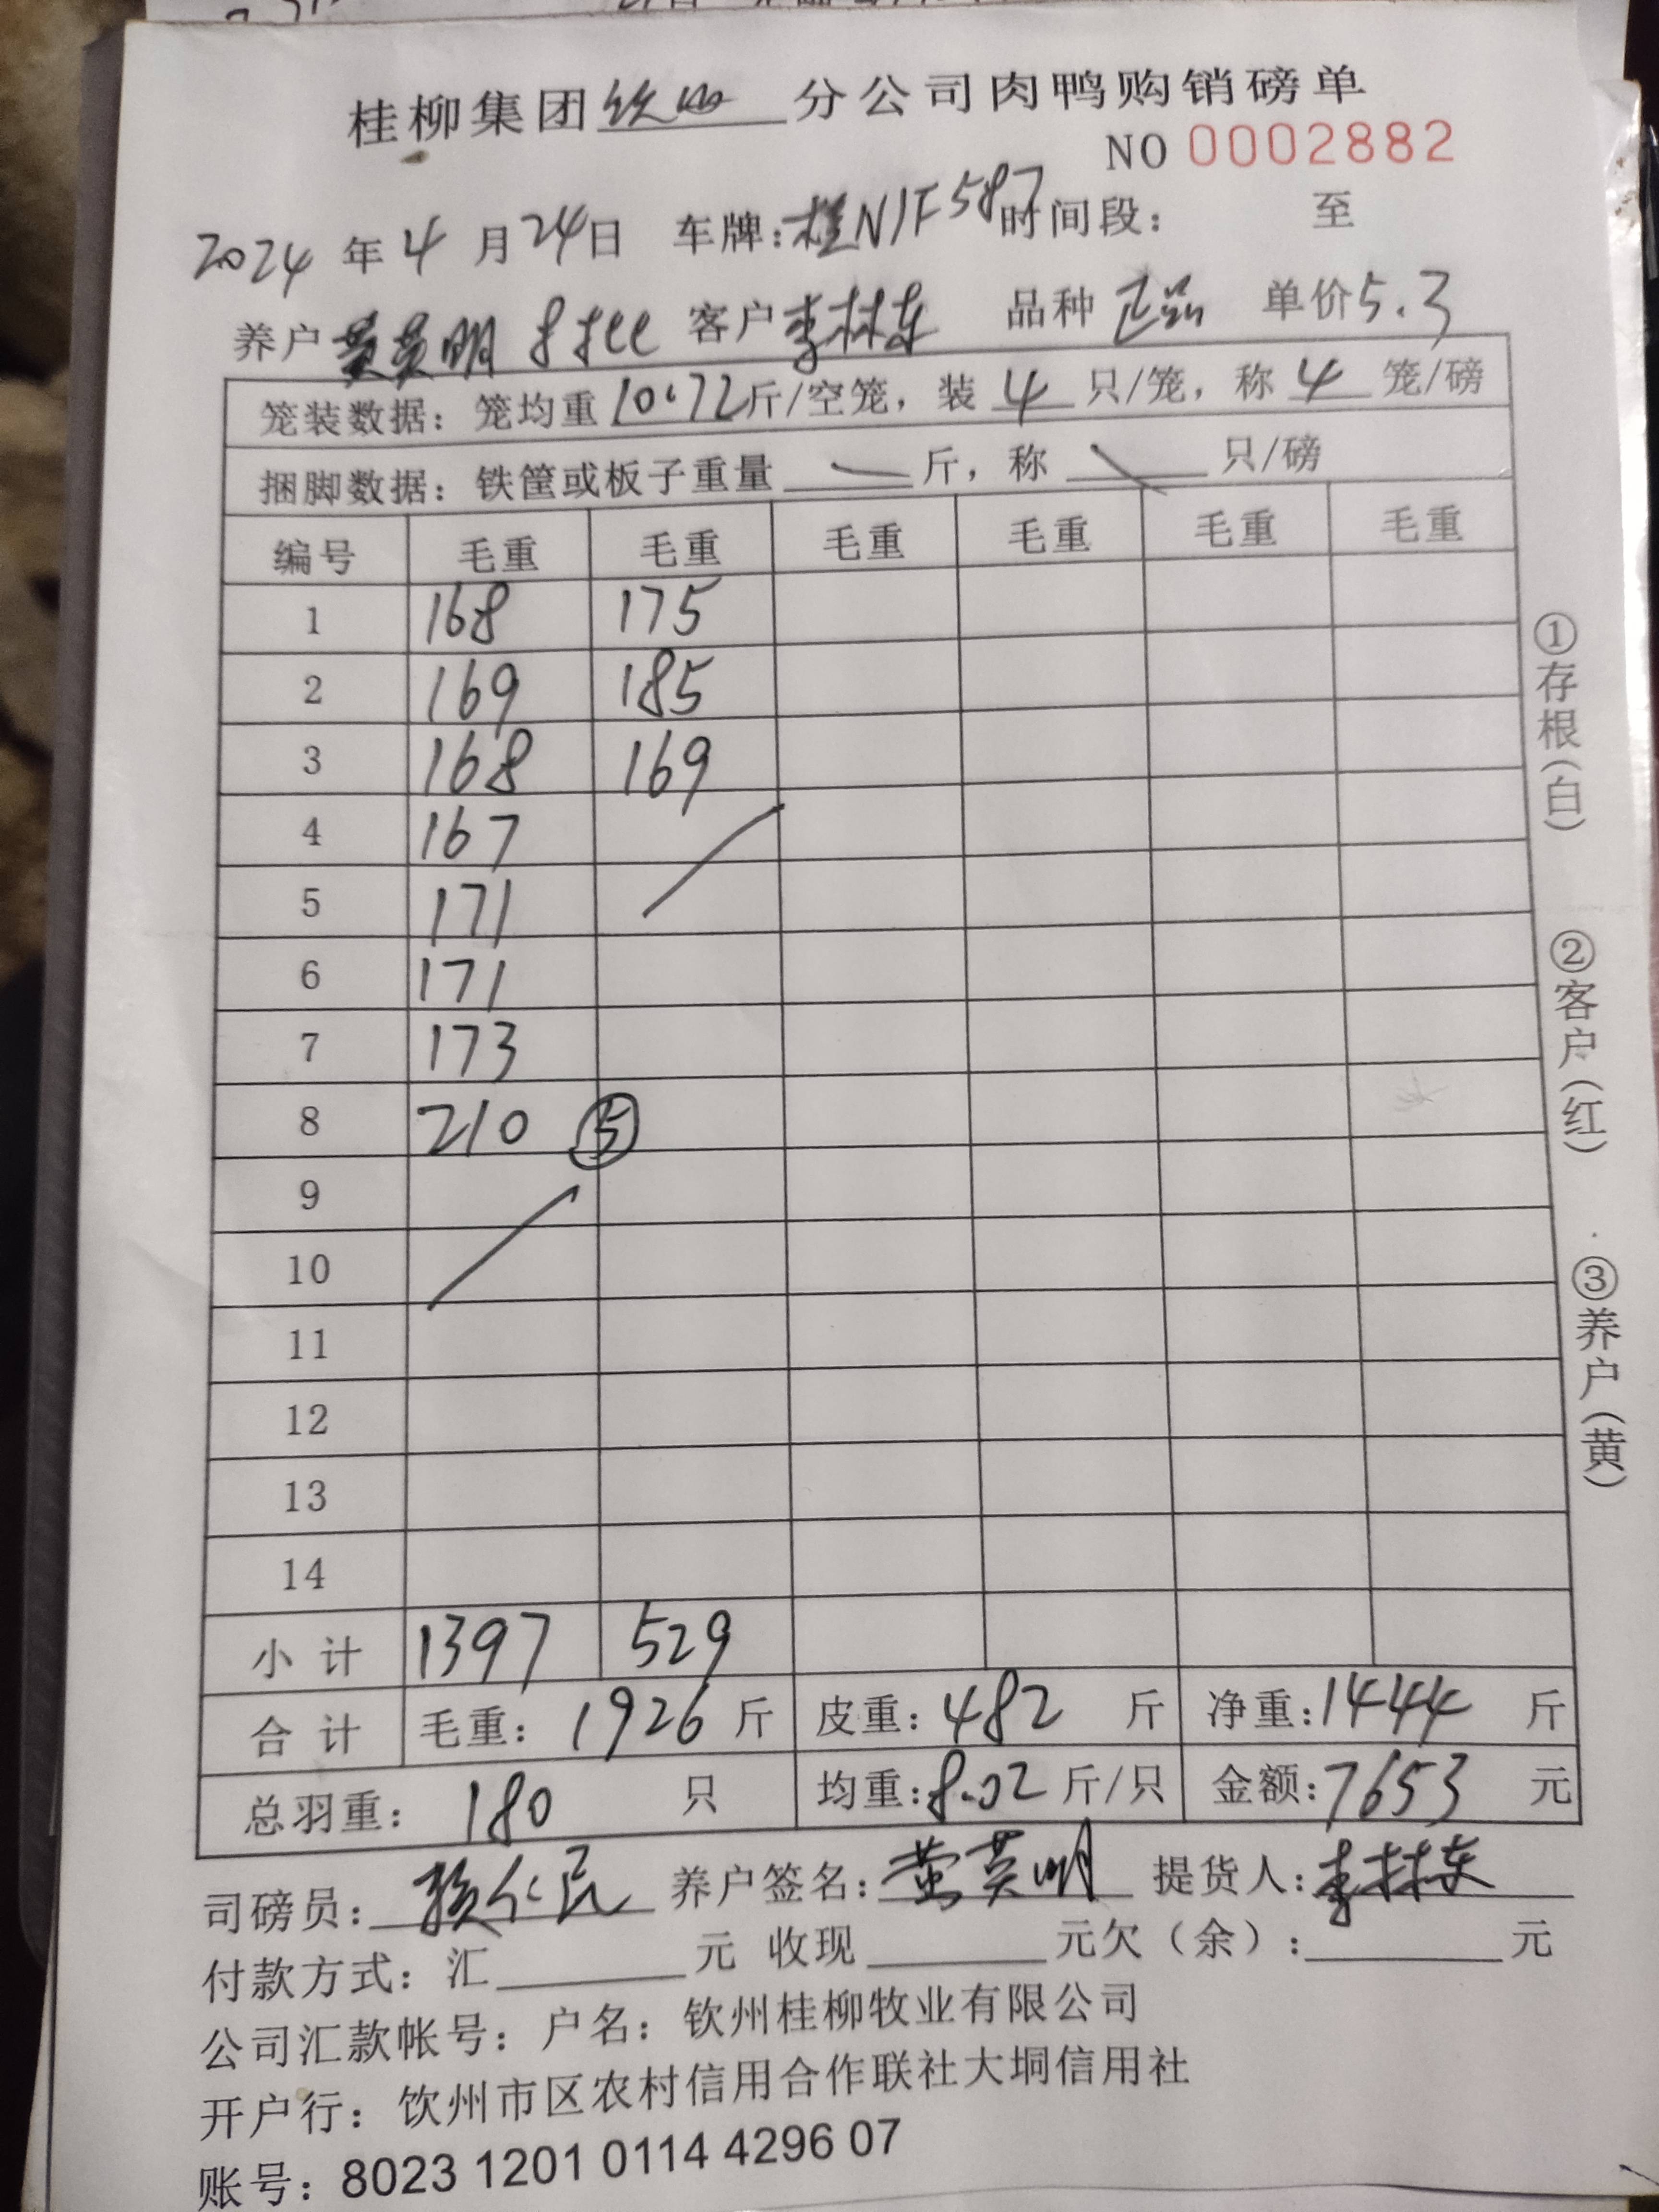 桂柳集团钦州分公司肉鸭购销磅单
NO 0002882
2024年4月24日 车牌:桂N1F587时间段: 至
养户黄英明 客户李林东 品种 单价5.3
笼装数据: 笼均重10.72斤/空笼, 装4只/笼, 称4笼/磅
捆脚数据: 铁筐或板子重量 斤, 称 只/磅
编号 毛重 毛重 毛重 毛重 毛重 毛重
1 168 175
2 169 185
3 168 169
4 167
5 171
6 171
7 173
8 210 ⑤
9
10
11
12
13
14
小计 1397 529
合计 毛重: 1926斤 皮重: 482斤 净重: 1444斤
总羽重: 180只 均重: 8.02斤/只 金额: 7653元
司磅员: 养户签名: 黄英明 提货人: 李林东
付款方式: 汇 元 收现 元欠(余): 元
公司汇款帐号: 户名: 钦州桂柳牧业有限公司
开户行: 钦州市区农村信用合作联社大垌信用社
账号: 8023 1201 0114 4296 07
①存根(白)
②客户(红)
③养户(黄)